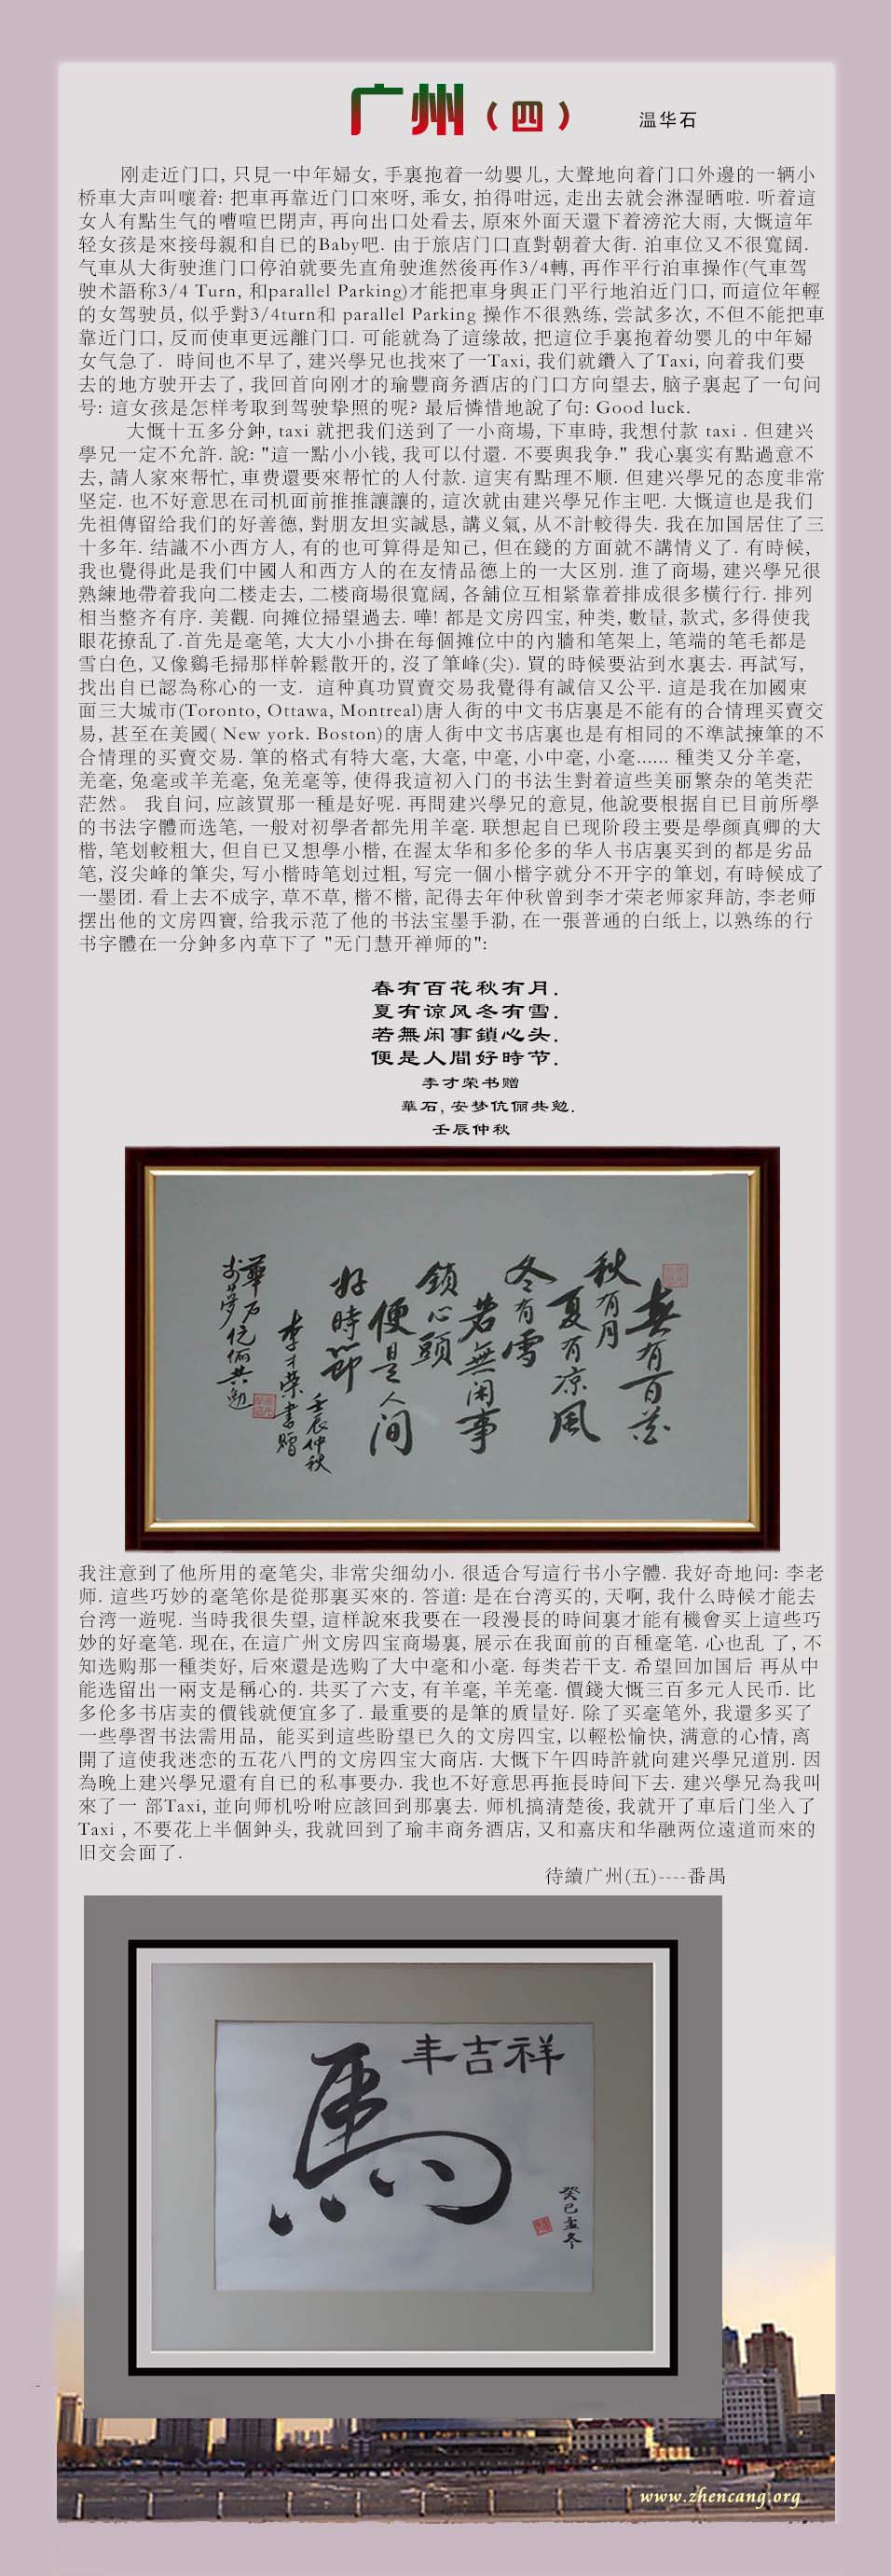 广州（四）
温华石
刚走近门口, 只見一中年婦女, 手裏抱着一幼嬰儿, 大聲地向着门口外邊的一辆小
桥車大声叫嚷着: 把車再靠近门口來呀, 乖女, 拍得咁远, 走出去就会淋湿晒啦. 听着這
女人有點生气的嘈喧巴閉声, 再向出口处看去, 原來外面天還下着滂沱大雨, 大慨這年
轻女孩是來接母親和自已的Baby吧. 由于旅店门口直對朝着大街. 泊車位又不很寬闊.
气車从大街驶進门口停泊就要先直角驶進然後再作3/4轉, 再作平行泊車操作(气車驾
驶术語称3/4 Turn, 和parallel Parking)才能把車身與正门平行地泊近门口, 而這位年輕
的女驾驶员, 似乎對3/4turn和 parallel Parking 操作不很熟练, 尝試多次, 不但不能把車
靠近门口, 反而使車更远離门口. 可能就為了這缘故, 把這位手裏抱着幼婴儿的中年婦
女气急了. 時间也不早了, 建兴學兄也找來了一Taxi, 我们就鑽入了Taxi, 向着我们要
去的地方驶开去了, 我回首向刚才的瑜豐商务酒店的门口方向望去, 脑子裏起了一句问
号: 這女孩是怎样考取到驾驶挚照的呢? 最后憐惜地說了句: Good luck.
大慨十五多分鈡, taxi 就把我们送到了一小商場, 下車時, 我想付款 taxi . 但建兴
學兄一定不允許. 說: "這一點小小钱, 我可以付還. 不要與我争." 我心裏实有點過意不
去, 請人家來帮忙, 車费還要來帮忙的人付款. 這実有點理不顺. 但建兴學兄的态度非常
坚定. 也不好意思在司机面前推推讓讓的, 這次就由建兴學兄作主吧. 大慨這也是我们
先祖傳留给我们的好善德, 對朋友坦实誠恳, 講义氣, 从不計較得失. 我在加国居住了三
十多年. 结識不小西方人, 有的也可算得是知己, 但在錢的方面就不講情义了. 有時候,
我也覺得此是我们中國人和西方人的在友情品德上的一大区別. 進了商場, 建兴學兄很
熟練地帶着我向二楼走去, 二楼商場很寬闊, 各舖位互相紧靠着排成很多橫行行. 排列
相当整齐有序. 美觀. 向摊位掃望過去. 嘩! 都是文房四宝, 种类, 數量, 款式, 多得使我
眼花撩乱了.首先是毫笔, 大大小小掛在每個摊位中的內牆和笔架上, 笔端的笔毛都是
雪白色, 又像鷄毛掃那样幹鬆散开的, 沒了筆峰(尖). 買的時候要沾到水裏去. 再試写,
找出自已認為称心的一支. 這种真功買賣交易我覺得有誠信又公平. 這是我在加國東
面三大城市(Toronto, Ottawa, Montreal)唐人街的中文书店裏是不能有的合情理买賣交
易, 甚至在美國( New york. Boston)的唐人街中文书店裏也是有相同的不準試揀筆的不
合情理的买賣交易. 筆的格式有特大毫, 大毫, 中毫, 小中毫, 小毫...... 種类又分羊毫,
羌毫, 兔毫或羊羌毫, 兔羌毫等, 使得我這初入门的书法生對着這些美丽繁杂的笔类茫
茫然。 我自问, 应該買那一種是好呢. 再問建兴學兄的意見, 他說要根据自已目前所學
的书法字體而选笔, 一般对初學者都先用羊毫. 联想起自已现阶段主要是學颜真卿的大
楷, 笔划較粗大, 但自已又想學小楷, 在渥太华和多伦多的华人书店裏买到的都是劣品
笔, 沒尖峰的筆尖, 写小楷時笔划过粗, 写完一個小楷字就分不开字的筆划, 有時候成了
一墨团. 看上去不成字, 草不草, 楷不楷, 記得去年仲秋曾到李才荣老师家拜訪, 李老师
摆出他的文房四寶, 给我示范了他的书法宝墨手泐, 在一張普通的白纸上, 以熟练的行
书字體在一分鈡多內草下了 "无门慧开禅师的":
春有百花秋有月.
夏有谅风冬有雪.
若無闲事鎖心头.
便是人間好時节.
李才荣书赠
華石, 安梦伉俪共勉.
壬辰仲秋
春有百花
秋有月
夏有凉風
冬有雪
若無闲事
鎖心頭
便是人间
好時節
壬辰仲秋
李才榮書赠
華石
安夢伉俪共勉
我注意到了他所用的毫笔尖, 非常尖细幼小. 很适合写這行书小字體. 我好奇地问: 李老
师. 這些巧妙的毫笔你是從那裏买來的. 答道: 是在台湾买的, 天啊, 我什么時候才能去
台湾一遊呢. 当時我很失望, 這样說來我要在一段漫長的時间裏才能有機會买上這些巧
妙的好毫笔. 现在, 在這广州文房四宝商場裏, 展示在我面前的百種毫笔. 心也乱 了, 不
知选购那一種类好, 后來還是选购了大中毫和小毫. 每类若干支. 希望回加国后 再从中
能选留出一兩支是稱心的. 共买了六支, 有羊毫, 羊羌毫. 價錢大慨三百多元人民币. 比
多伦多书店卖的價钱就便宜多了. 最重要的是筆的質量好. 除了买毫笔外, 我還多买了
一些學習书法需用品, 能买到這些盼望已久的文房四宝, 以輕松愉快, 满意的心情, 离
開了這使我迷恋的五花八門的文房四宝大商店. 大慨下午四時許就向建兴學兄道別. 因
為晚上建兴學兄還有自已的私事要办. 我也不好意思再拖長時间下去. 建兴學兄為我叫
來了一 部Taxi, 並向师机吩咐应該回到那裏去. 师机搞清楚後, 我就开了車后门坐入了
Taxi , 不要花上半個鈡头, 我就回到了瑜丰商务酒店, 又和嘉庆和华融两位遠道而來的
旧交会面了.
待續广州(五)----番禺
丰吉祥
馬
癸巳孟冬
www.zhencang.org